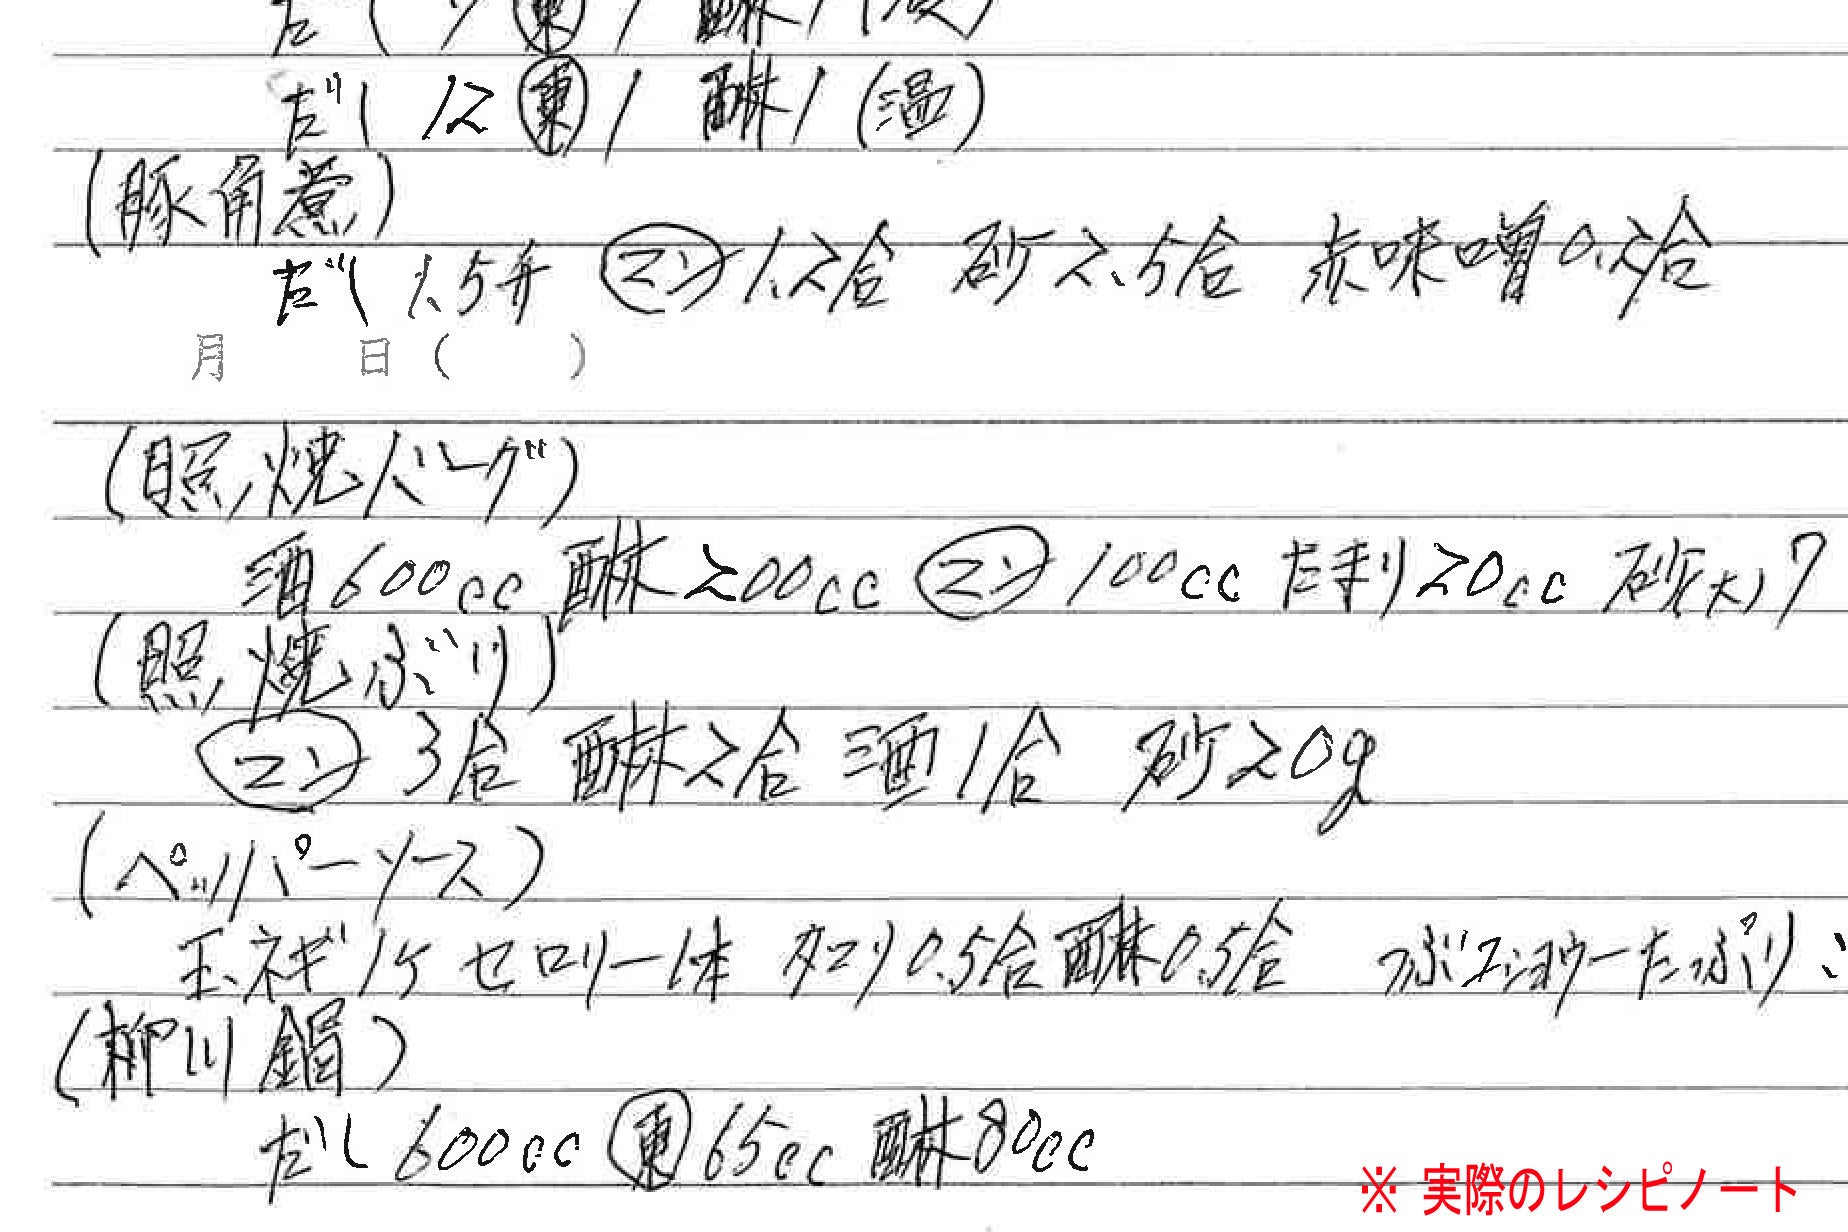 だし 12 ㊍東 1 醂1 (温)
(豚角煮)
だし 1.5升 コン 1.2合 砂2.5合 赤味噌0.2合
月 日( )
(照焼バーグ)
酒600cc 醂200cc コン 100cc たまり20cc 砂大7
(照焼ぶり)
コン 3合 醂2合 酒1合 砂20g
(ペッパーソース)
玉ネギ1ケ セロリー1本 タマリ0.5合 醂0.5合 つぶコショウーたっぷり
(柳川鍋)
だし 600cc 東 65cc 醂80cc
※ 実際のレシピノート